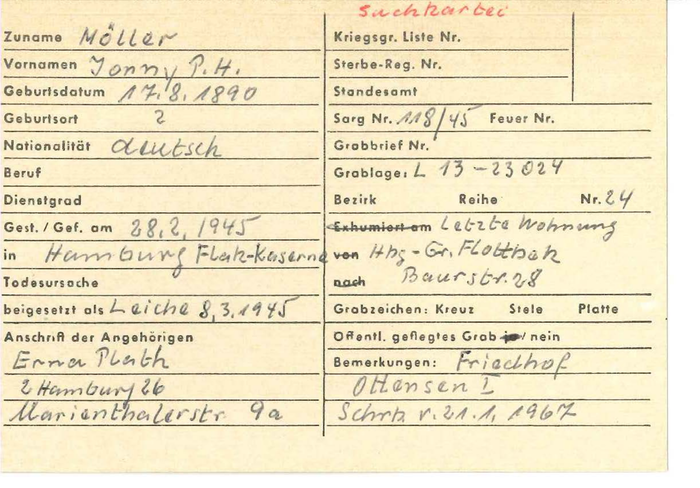 Suchkartei
Zuname Möller
Vornamen Jonny P.H.
Geburtsdatum 17.8.1890
Geburtsort ?
Nationalität deutsch
Beruf
Dienstgrad
Gest./Gef. am 28.2.1945
in Hamburg Flak-Kaserne
Todesursache
beigesetzt als Leiche 8.3.1945
Anschrift der Angehörigen
Erna Plath
2 Hamburg 26
Marienthalerstr. 9a
Kriegsgr. Liste Nr.
Sterbe-Reg. Nr.
Standesamt
Sarg Nr. 118/45 Feuer Nr.
Grabbrief Nr.
Grablage: L 13-23 024
Bezirk Reihe Nr. 24
Exhumiert am Letzte Wohnung
von Hbg-Gr. Flottbek
nach Baurstr. 28
Grabzeichen: Kreuz Stele Platte
Öffentl. gepflegtes Grab ja / nein
Bemerkungen: Friedhof
Ottensen I
Schrb. v. 21.1.1967